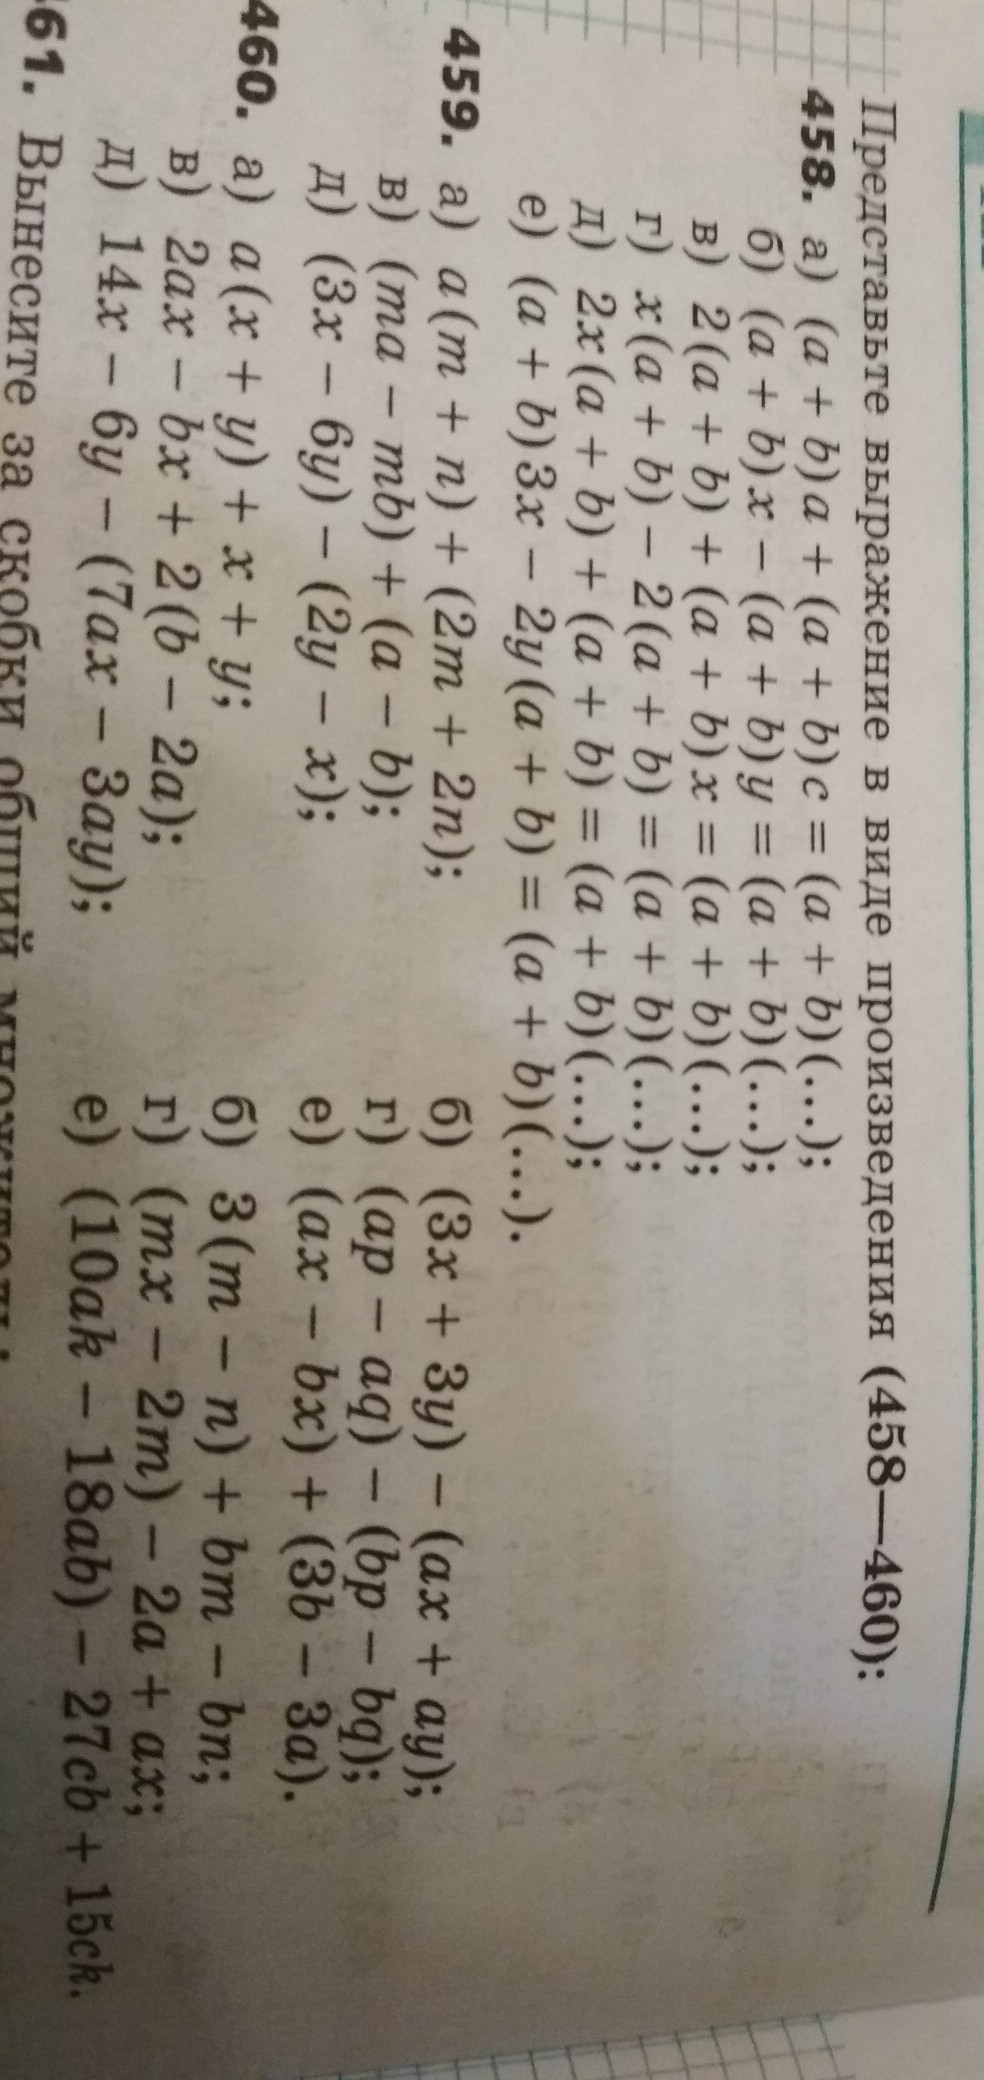 Представьте выражение в виде произведения (458—460):
458. а) (a + b)a + (a + b)c = (a + b)(...);
б) (a + b)x − (a + b)y = (a + b)(...);
в) 2(a + b) + (a + b)x = (a + b)(...);
г) x(a + b) − 2(a + b) = (a + b)(...);
д) 2x(a + b) + (a + b) = (a + b)(...);
е) (a + b)3x − 2y(a + b) = (a + b)(...).
459. а) a(m + n) + (2m + 2n); б) (3x + 3y) − (ax + ay);
в) (ma − mb) + (a − b); г) (ap − aq) − (bp − bq);
д) (3x − 6y) − (2y − x); е) (ax − bx) + (3b − 3a).
460. а) a(x + y) + x + y; б) 3(m − n) + bm − bn;
в) 2ax − bx + 2(b − 2a); г) (mx − 2m) − 2a + ax;
д) 14x − 6y − (7ax − 3ay); е) (10ak − 18ab) − 27cb + 15ck.
61. Вынесите за скобки общий множитель: